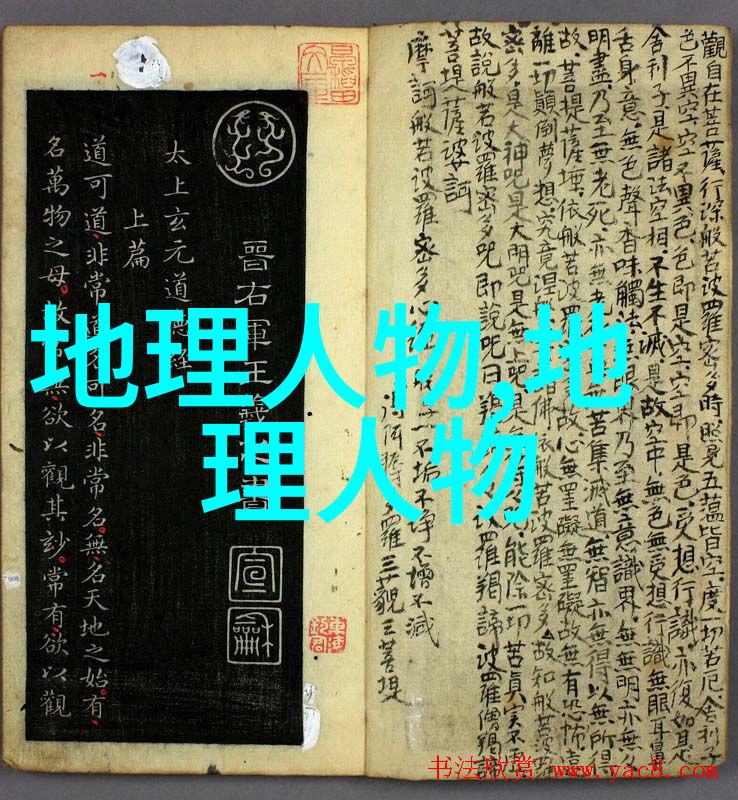 地理人物,地
理人物
觀自在菩薩行深般若波羅密多時照見五蘊皆空度一切苦厄舍利子
色不異空空不異色色即是空空即是色受想行識亦復如是
舍利子是諸法空相不生不滅是故空中無色無受想行識無眼耳鼻
舌身意無色聲香味觸法無眼界乃至無意識界無無明亦無無
明盡乃至無老死亦無老無苦集滅道無智亦無得以無所得
故菩提薩埵依般若波羅故心無罣礙無罣礙故無有恐怖遠
離一切顛倒夢想究竟涅佛依般若波羅密多故知般若波羅
密多是大神咒是大明咒是無上咒是能除一切苦真實不虛
故說般若波羅密多咒即說咒曰羯波羅羯諦波羅僧羯諦
菩提薩婆訶
摩訶般若波羅密多心不垢不淨不增不減
羅三藐三菩提
晉右軍王羲之書
宣
龢
太上玄元道德經
上篇
道可道非常道名可名非常名無名天地之始有
名萬物之母故常無欲以觀其妙常有欲以觀
书法欣赏 www.yac8.com